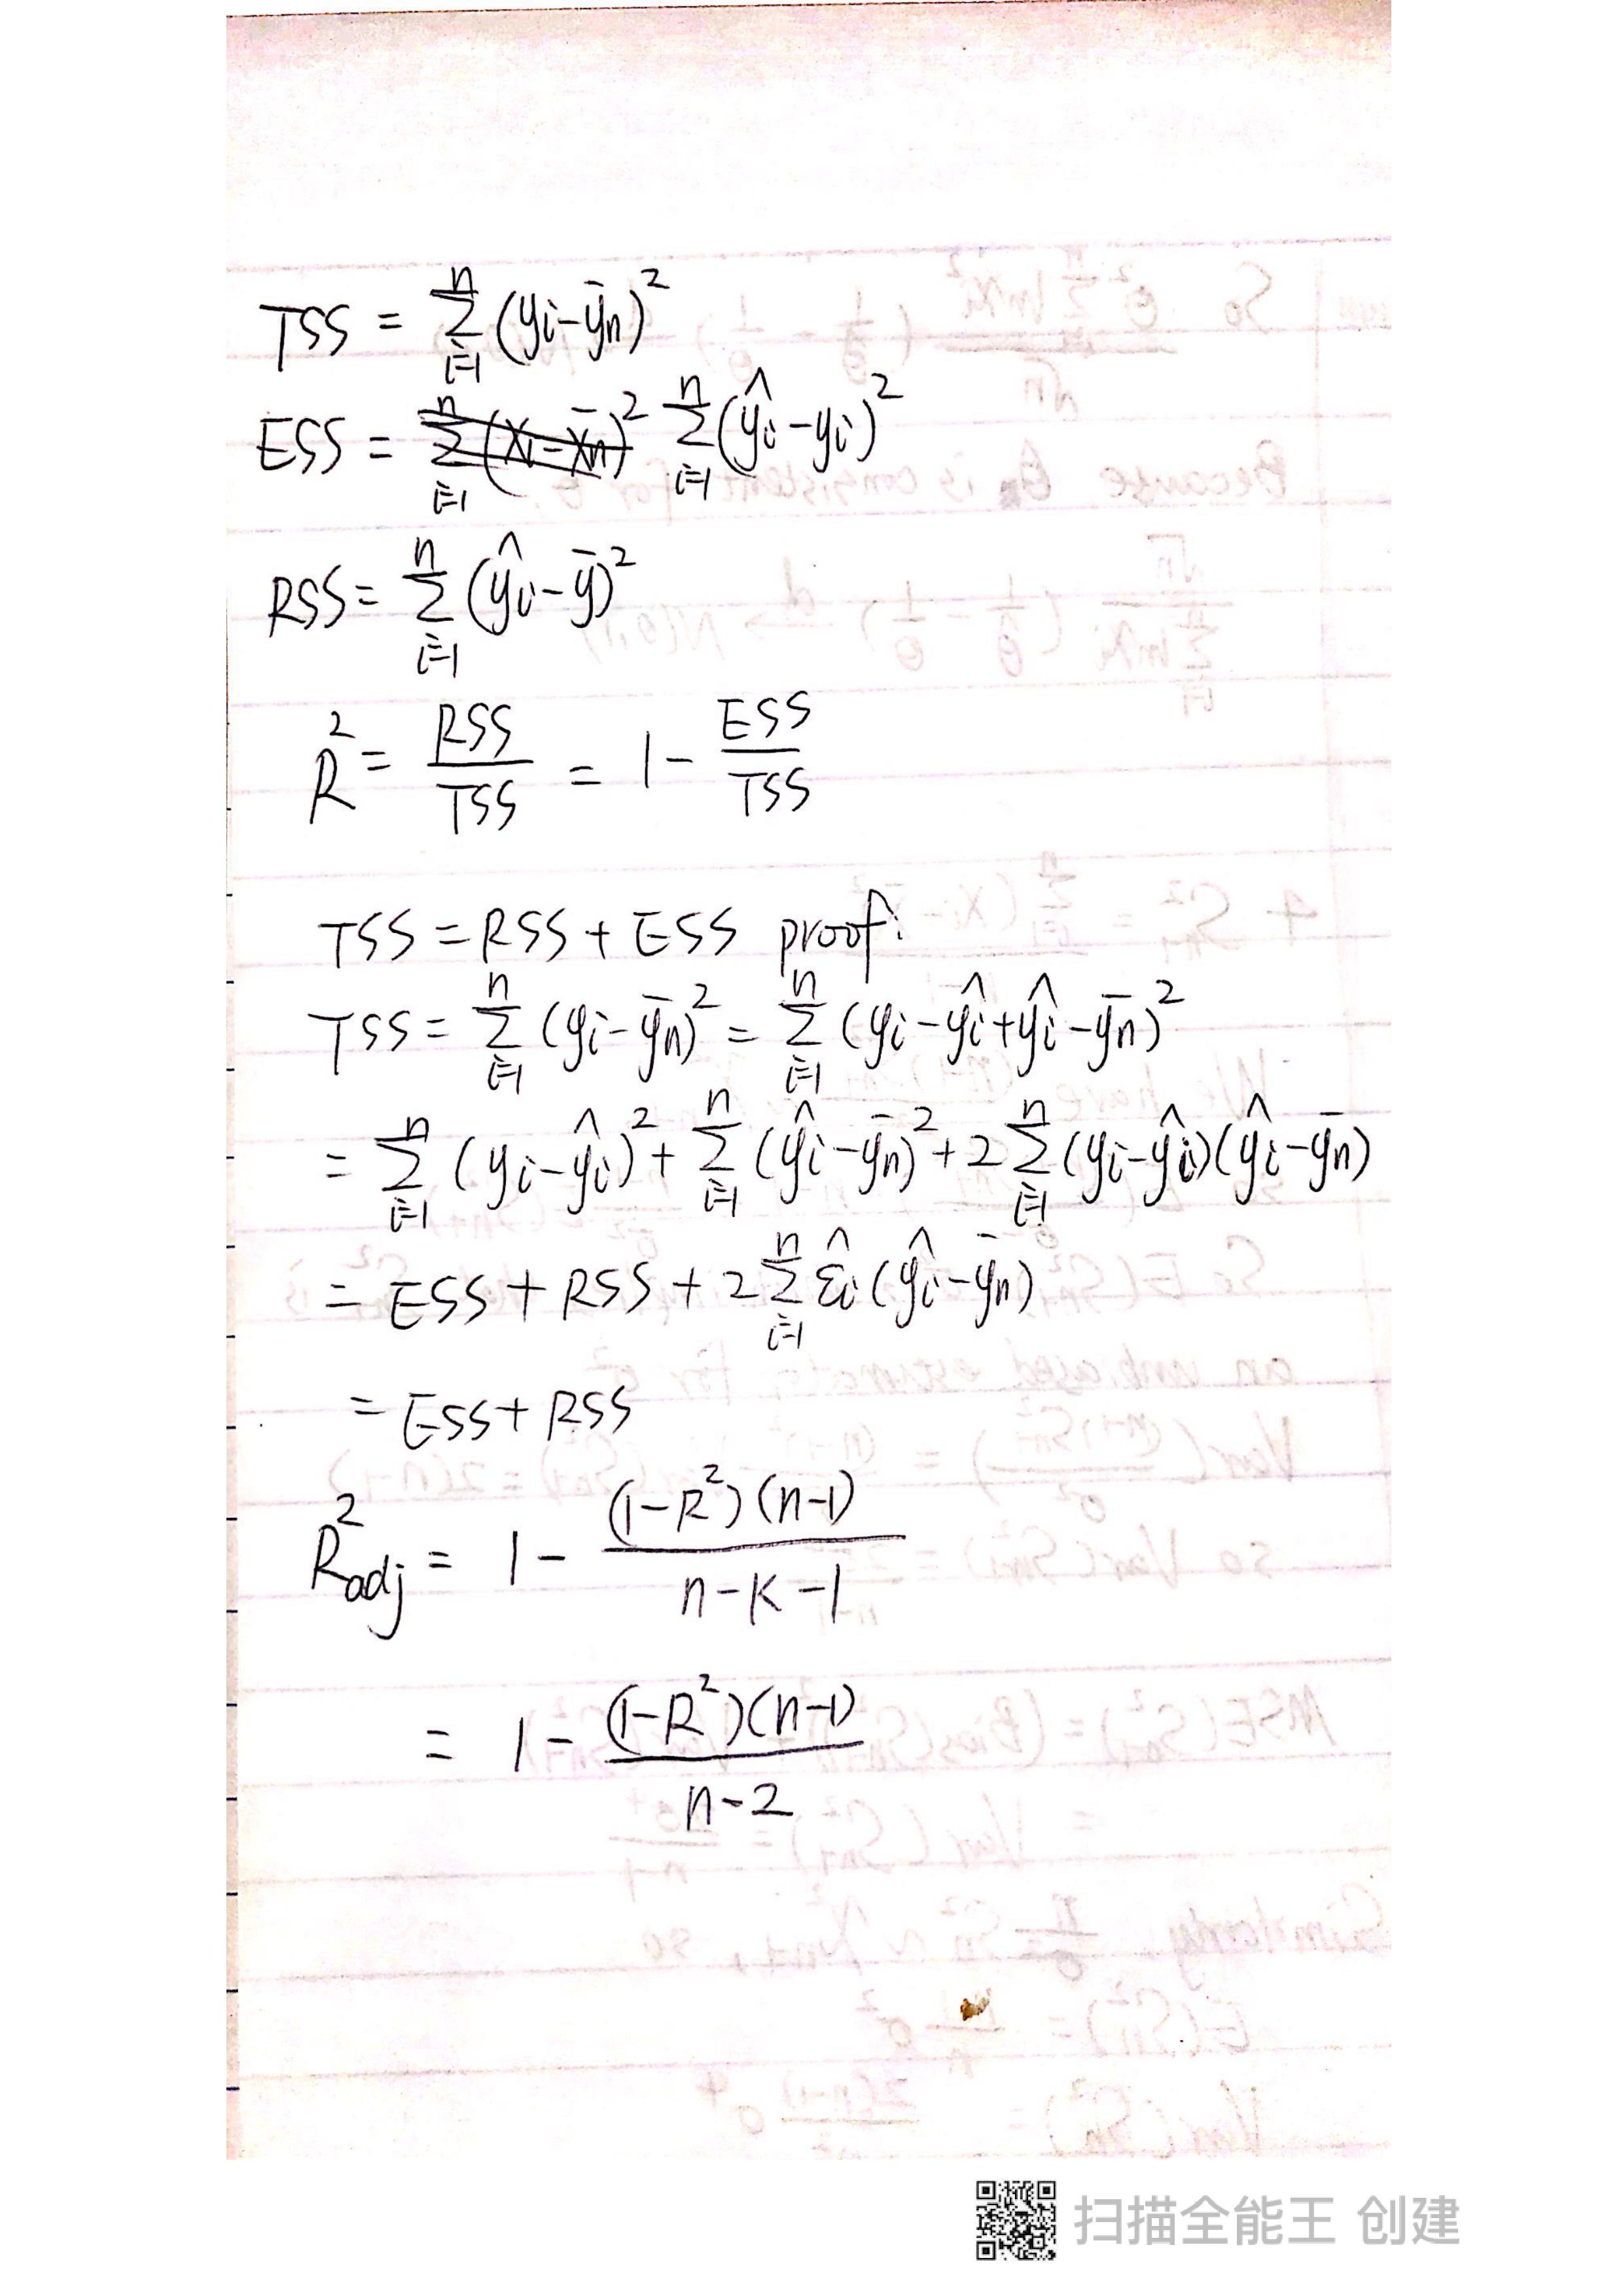 TSS = \sum_{i=1}^{n} (y_i - \bar{y}_n)^2
ESS = \sum_{i=1}^{n} (\hat{y}_i - y_i)^2
RSS = \sum_{i=1}^{n} (\hat{y}_i - \bar{y})^2
R^2 = \frac{RSS}{TSS} = 1 - \frac{ESS}{TSS}
TSS = RSS + ESS proof:
TSS = \sum_{i=1}^{n} (y_i - \bar{y}_n)^2 = \sum_{i=1}^{n} (y_i - \hat{y}_i + \hat{y}_i - \bar{y}_n)^2
= \sum_{i=1}^{n} (y_i - \hat{y}_i)^2 + \sum_{i=1}^{n} (\hat{y}_i - \bar{y}_n)^2 + 2 \sum_{i=1}^{n} (y_i - \hat{y}_i)(\hat{y}_i - \bar{y}_n)
= ESS + RSS + 2 \sum_{i=1}^{n} \hat{\varepsilon}_i (\hat{y}_i - \bar{y}_n)
= ESS + RSS
R^2_{adj} = 1 - \frac{(1-R^2)(n-1)}{n-K-1}
= 1 - \frac{(1-R^2)(n-1)}{n-2}
扫描全能王 创建